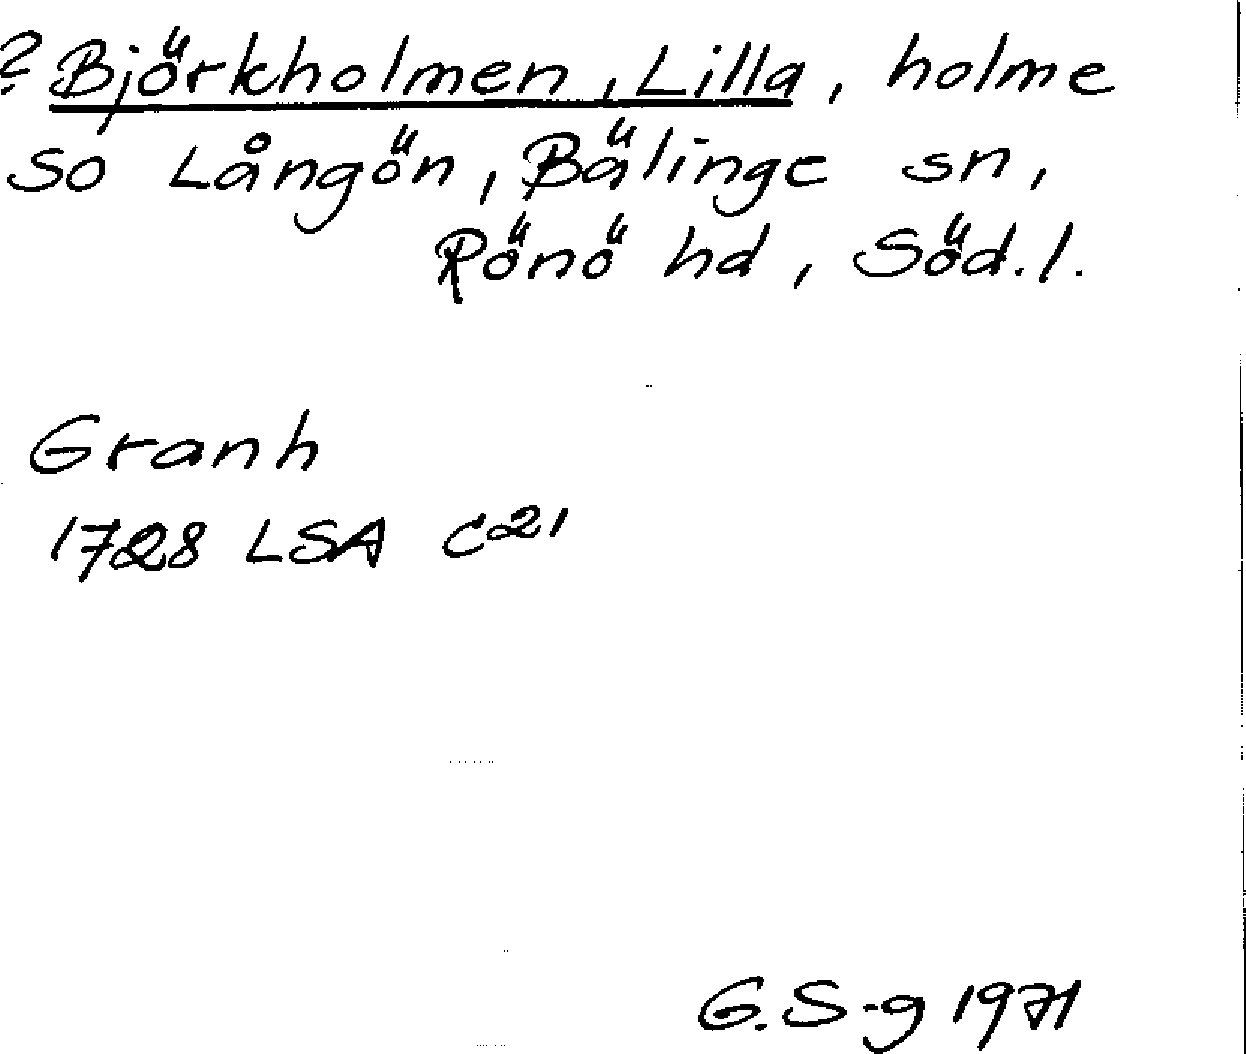 ? Björkholmen, Lilla, holme
SO Långön, Bälinge sn,
Rönö hd, Söd.l.
Granh
1728 LSA C21
G.S-g 1971